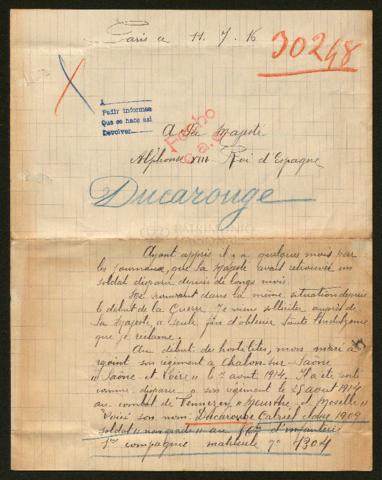 Paris le 11. 7. 16
30248
A
Pedir informes
Que se hace así
Devolver
Fecho
A Sa Majesté
Alphonse XIII Roi d'Espagne
Ducarouge
Ayant appris il y a quelques mois par
les journaux, que Sa Majesté avait retrouvé un
soldat disparu depuis de longs mois.
Me trouvant dans la même situation depuis
le début de la Guerre. Je viens solliciter auprès de
Sa Majesté, a seule fin d'obtenir
que je réclame.
Au début des hostilités, mon mari a
rejoint son régiment a Chalon-sur-Saône
"Saône et Loire" le 2 août 1914. Il a été
comme disparu a son régiment le 25 août 1914
au combat de "Meurthe et Moselle"
Voici son nom: Ducarouge classe 1909
soldat au d'infanterie
compagnie matricule n° 4304